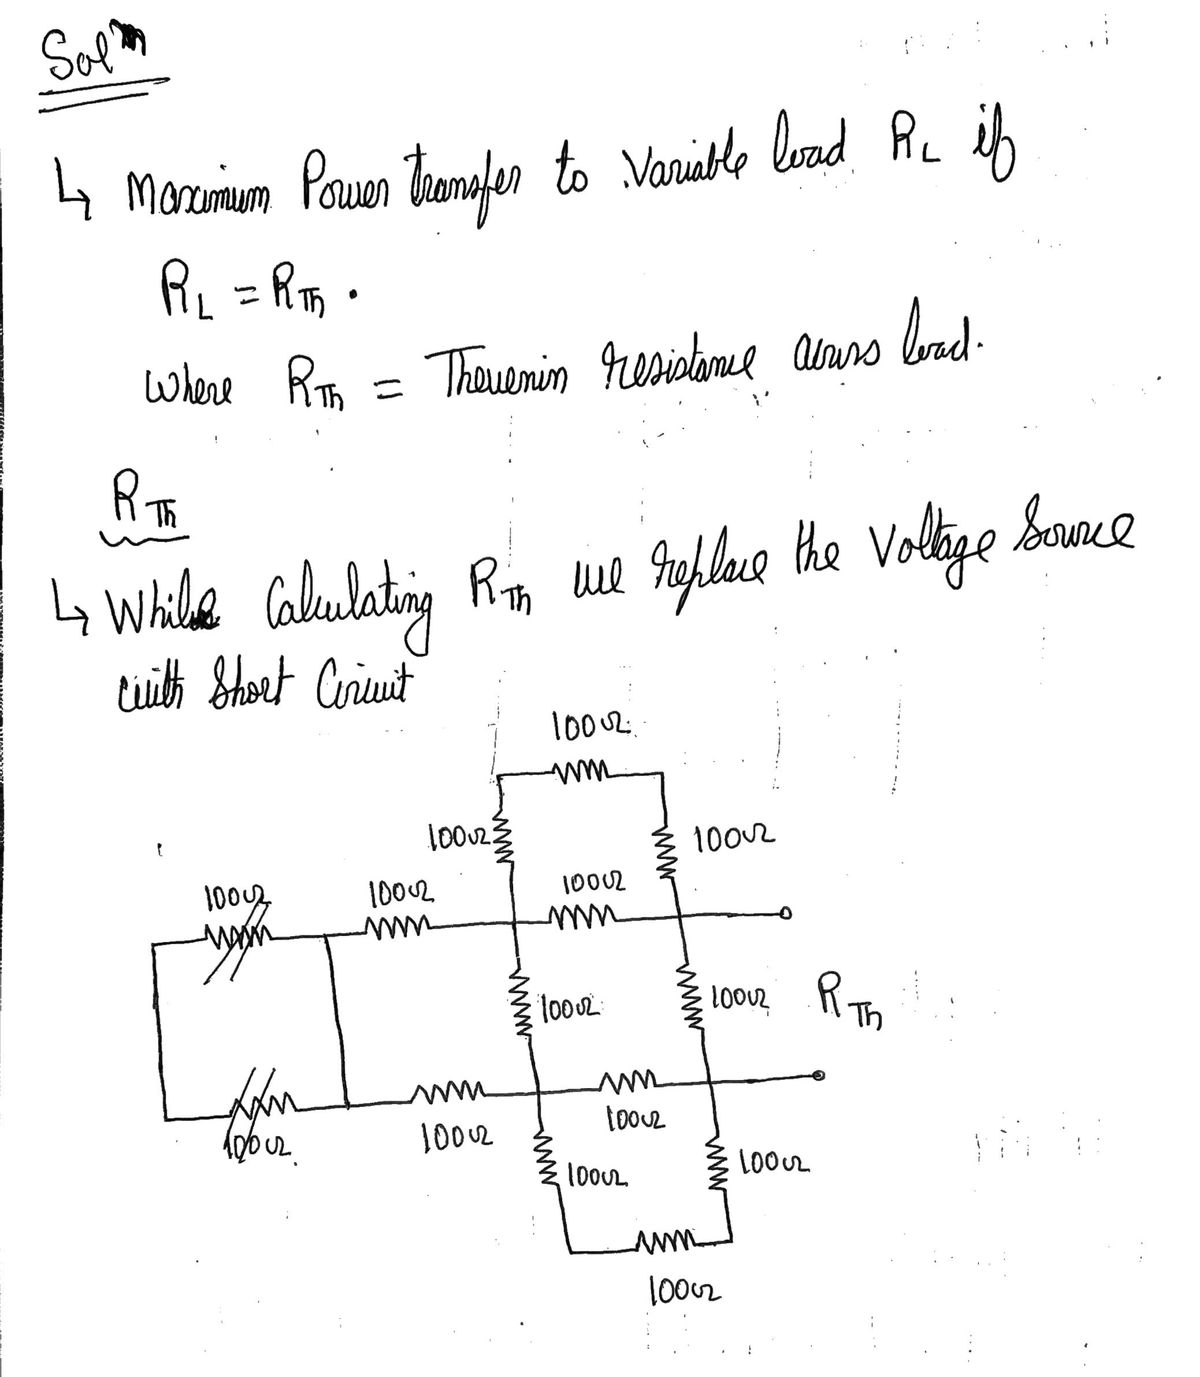 Solⁿ
↳ Maximum Power transfer to Variable load R_L if
R_L = R_Th .
Where R_Th = Thevenin resistance across load.
R_Th
↳ While Calculating R_Th we replace the Voltage Source
with Short Circuit
100Ω
100Ω 100Ω
100Ω 100Ω 100Ω
100Ω 100Ω R_Th
100Ω 100Ω 100Ω
100Ω 100Ω
100Ω